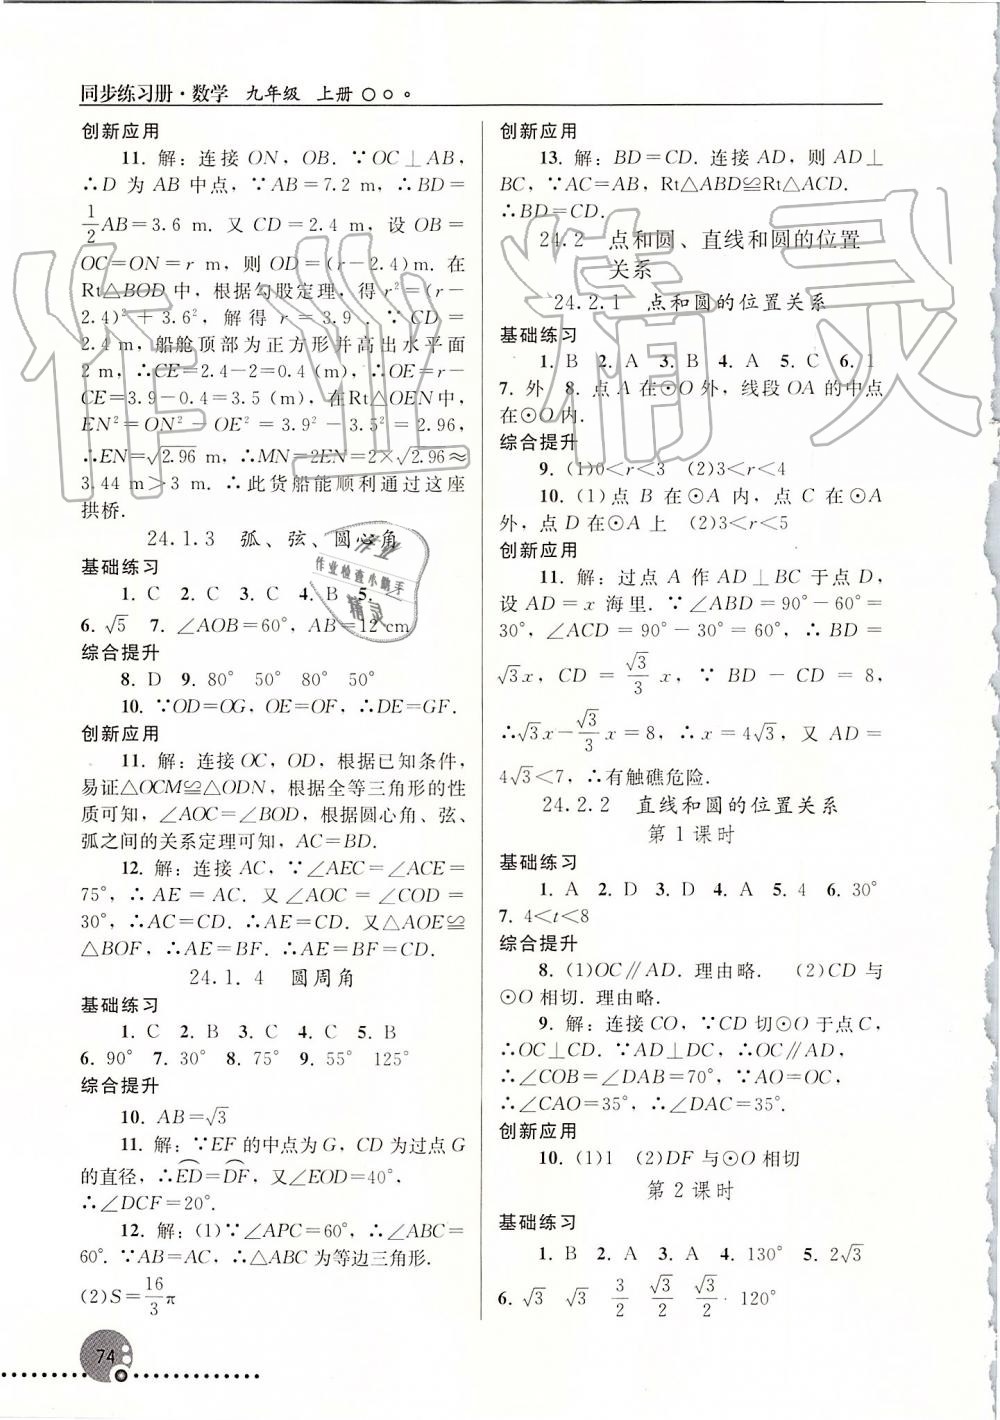 同步练习册·数学 九年级 上册
创新应用
11. 解：连接 ON，OB. ∵OC⊥AB，
∴D 为 AB 中点，∵AB＝7.2 m，∴BD＝
1/2 AB＝3.6 m. 又 CD＝2.4 m，设 OB＝
OC＝ON＝r m，则 OD＝(r－2.4) m. 在
Rt△BOD 中，根据勾股定理，得 r²＝(r－
2.4)²＋3.6²，解得 r＝3.9. ∵CD＝
2.4 m，船舱顶部为正方形并高出水平面
2 m，∴CE＝2.4－2＝0.4 (m)，∴OE＝r－
CE＝3.9－0.4＝3.5 (m)，在Rt△OEN中，
EN²＝ON²－OE²＝3.9²－3.5²＝2.96，
∴EN＝√2.96 m. ∴MN＝2EN＝2×√2.96≈
3.44 m＞3 m. ∴此货船能顺利通过这座
拱桥.
24.1.3 弧、弦、圆心角
基础练习
1. C 2. C 3. C 4. B 5.
6. √5 7. ∠AOB＝60°，AB＝12 cm
综合提升
8. D 9. 80° 50° 80° 50°
10. ∵OD＝OG，OE＝OF，∴DE＝GF.
创新应用
11. 解：连接 OC，OD，根据已知条件，
易证△OCM≌△ODN，根据全等三角形的性
质可知，∠AOC＝∠BOD，根据圆心角、弦、
弧之间的关系定理可知，AC＝BD.
12. 解：连接 AC，∵∠AEC＝∠ACE＝
75°，∴AE＝AC. 又∠AOC＝∠COD＝
30°，∴AC＝CD. ∴AE＝CD. 又△AOE≌
△BOF，∴AE＝BF. ∴AE＝BF＝CD.
24.1.4 圆周角
基础练习
1. C 2. B 3. C 4. C 5. B
6. 90° 7. 30° 8. 75° 9. 55° 125°
综合提升
10. AB＝√3
11. 解：∵EF 的中点为 G，CD 为过点 G
的直径，∴ED⌒＝DF⌒，又∠EOF＝40°，
∴∠DCF＝20°.
12. 解：(1)∵∠APC＝60°，∴∠ABC＝
60°. ∵AB＝AC，∴△ABC 为等边三角形.
(2)S＝16/3 π
74
创新应用
13. 解：BD＝CD. 连接 AD，则 AD⊥
BC，∵AC＝AB，Rt△ABD≌Rt△ACD.
∴BD＝CD.
24.2 点和圆、直线和圆的位置
关系
24.2.1 点和圆的位置关系
基础练习
1. B 2. A 3. B 4. A 5. C 6. 1
7. 外 8. 点 A 在⊙O 外，线段 OA 的中点
在⊙O 内.
综合提升
9. (1)0＜r＜3 (2)3＜r＜4
10. (1)点 B 在⊙A 内，点 C 在⊙A
外，点 D 在⊙A 上 (2)3＜r＜5
创新应用
11. 解：过点 A 作 AD⊥BC 于点 D，
设 AD＝x 海里. ∵∠ABD＝90°－60°＝
30°，∠ACD＝90°－30°＝60°，∴BD＝
√3x，CD＝√3/3 x，∵BD－CD＝8，
∴√3x－√3/3 x＝8，∴x＝4√3，又 AD＝
4√3＜7，∴有触礁危险.
24.2.2 直线和圆的位置关系
第 1 课时
基础练习
1. A 2. D 3. D 4. A 5. 4 6. 30°
7. 4＜t＜8
综合提升
8. (1)OC∥AD. 理由略. (2)CD 与
⊙O 相切. 理由略.
9. 解：连接 CO，∵CD 切⊙O 于点 C，
∴OC⊥CD. ∵AD⊥DC，∴OC∥AD，
∴∠COB＝∠DAB＝70°. ∵AO＝OC，
∴∠CAO＝35°，∴∠DAC＝35°.
创新应用
10. (1)1 (2)DF 与⊙O 相切
第 2 课时
基础练习
1. B 2. A 3. A 4. 130° 5. 2√3
6. √3 √3 3/2 √3/2 √3/2 · 120°